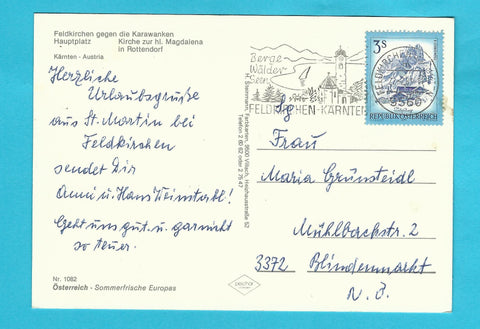 Feldkirchen gegen die Karawanken
Hauptplatz Kirche zur hl. Magdalena
in Rottendorf
Kärnten - Austria
Herzliche
Urlaubsgrüße
aus St. Martin bei
Feldkirchen
sendet Dir
Anni u. Hans Weinstabl!
Geht uns gut u. garnicht
so teuer.
Nr. 1082
Österreich - Sommerfrische Europas
Berge
Wälder
Seen
FELDKIRCHEN-KÄRNTEN
3S
REPUBLIK ÖSTERREICH
9560
Frau
Maria Grünsteidl
Mühlbachstr. 2
3372 Blindenmarkt
N.Ö.